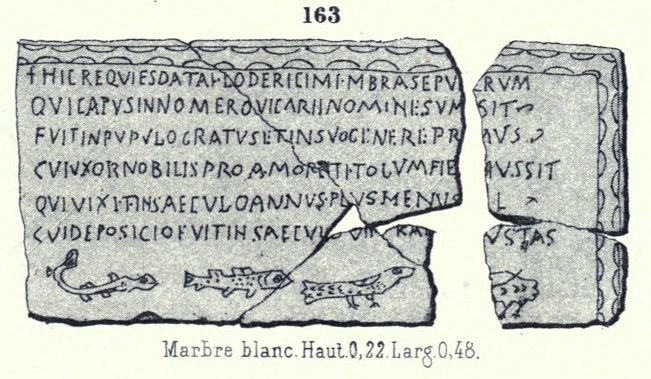 163
†HICREQVIESDATAHLODERICIMEMBRASEPVLCRVM
QVICAPVSINNOMEROVICARIINOMINESVMSIT
FVITINPVPVLOGRATVSETINSVOGENEREPRIMVS
CVIVXORNOBILISPROAMORETITOLVMFIE AVSSIT
QVIVIXITINSAECVLOANNVSPLVSMENVS L
CVIDEPOSICIOFVITINSAECVLO VII KAL VSTAS
Marbre blanc. Haut. 0,22. Larg. 0,48.